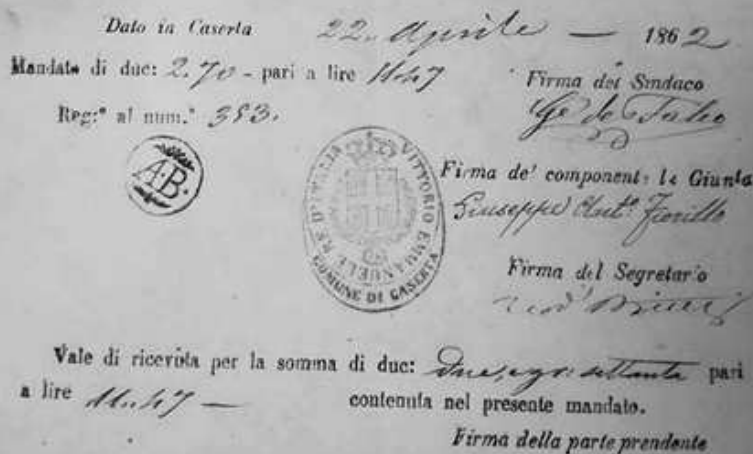 Dato in Caserta 22. Aprile — 1862
Mandato di duc: 2.70 - pari a lire 11.47
Firma del Sindaco
Reg:º al num.º 383.
A.B.
VITTORIO EMMANUELE RE D'ITALIA
COMUNE DI CASERTA
Firma de' component: la Giunta
Giuseppe Ant.º Fiorillo
Firma del Segretario
Vale di ricevuta per la somma di duc: due, e gr: settanta pari
a lire 11.47 — contenuta nel presente mandato.
Firma della parte prendente